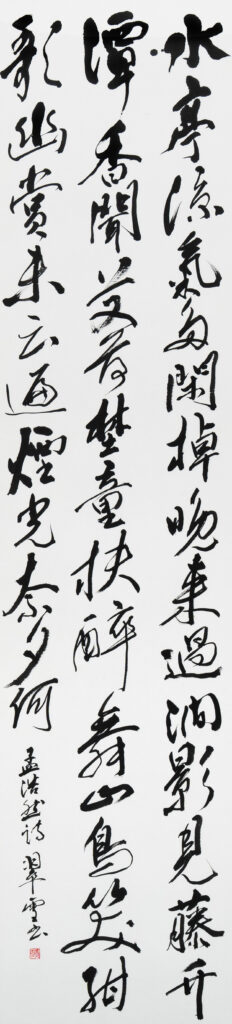 水亭涼氣多閑棹晚來過澗影見藤竹
潭香聞芰荷埜童扶醉舞山鳥笑酣
歌幽賞未云遍煙光奈夕何
孟浩然詩 翠雪书